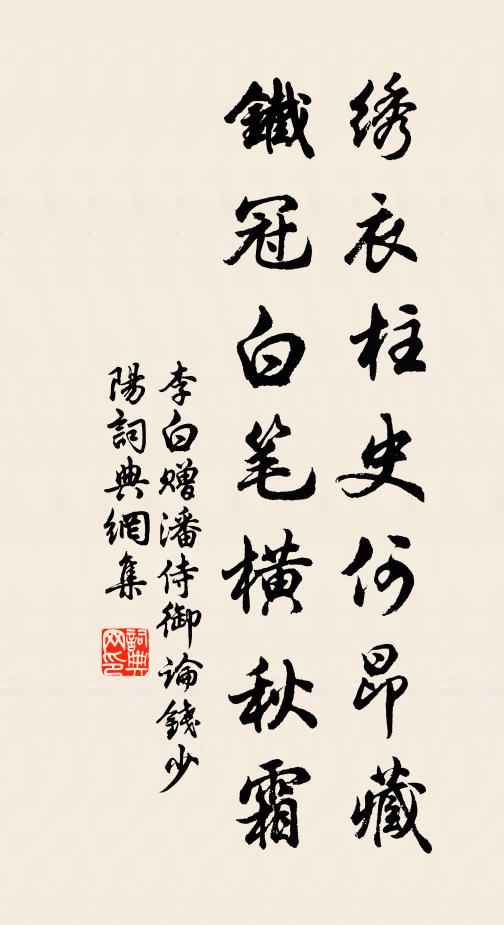 绣衣柱史何昂藏
鐵冠白笔橫秋霜
李白赠潘侍御論錢少
陽詞典網集
詞典网印